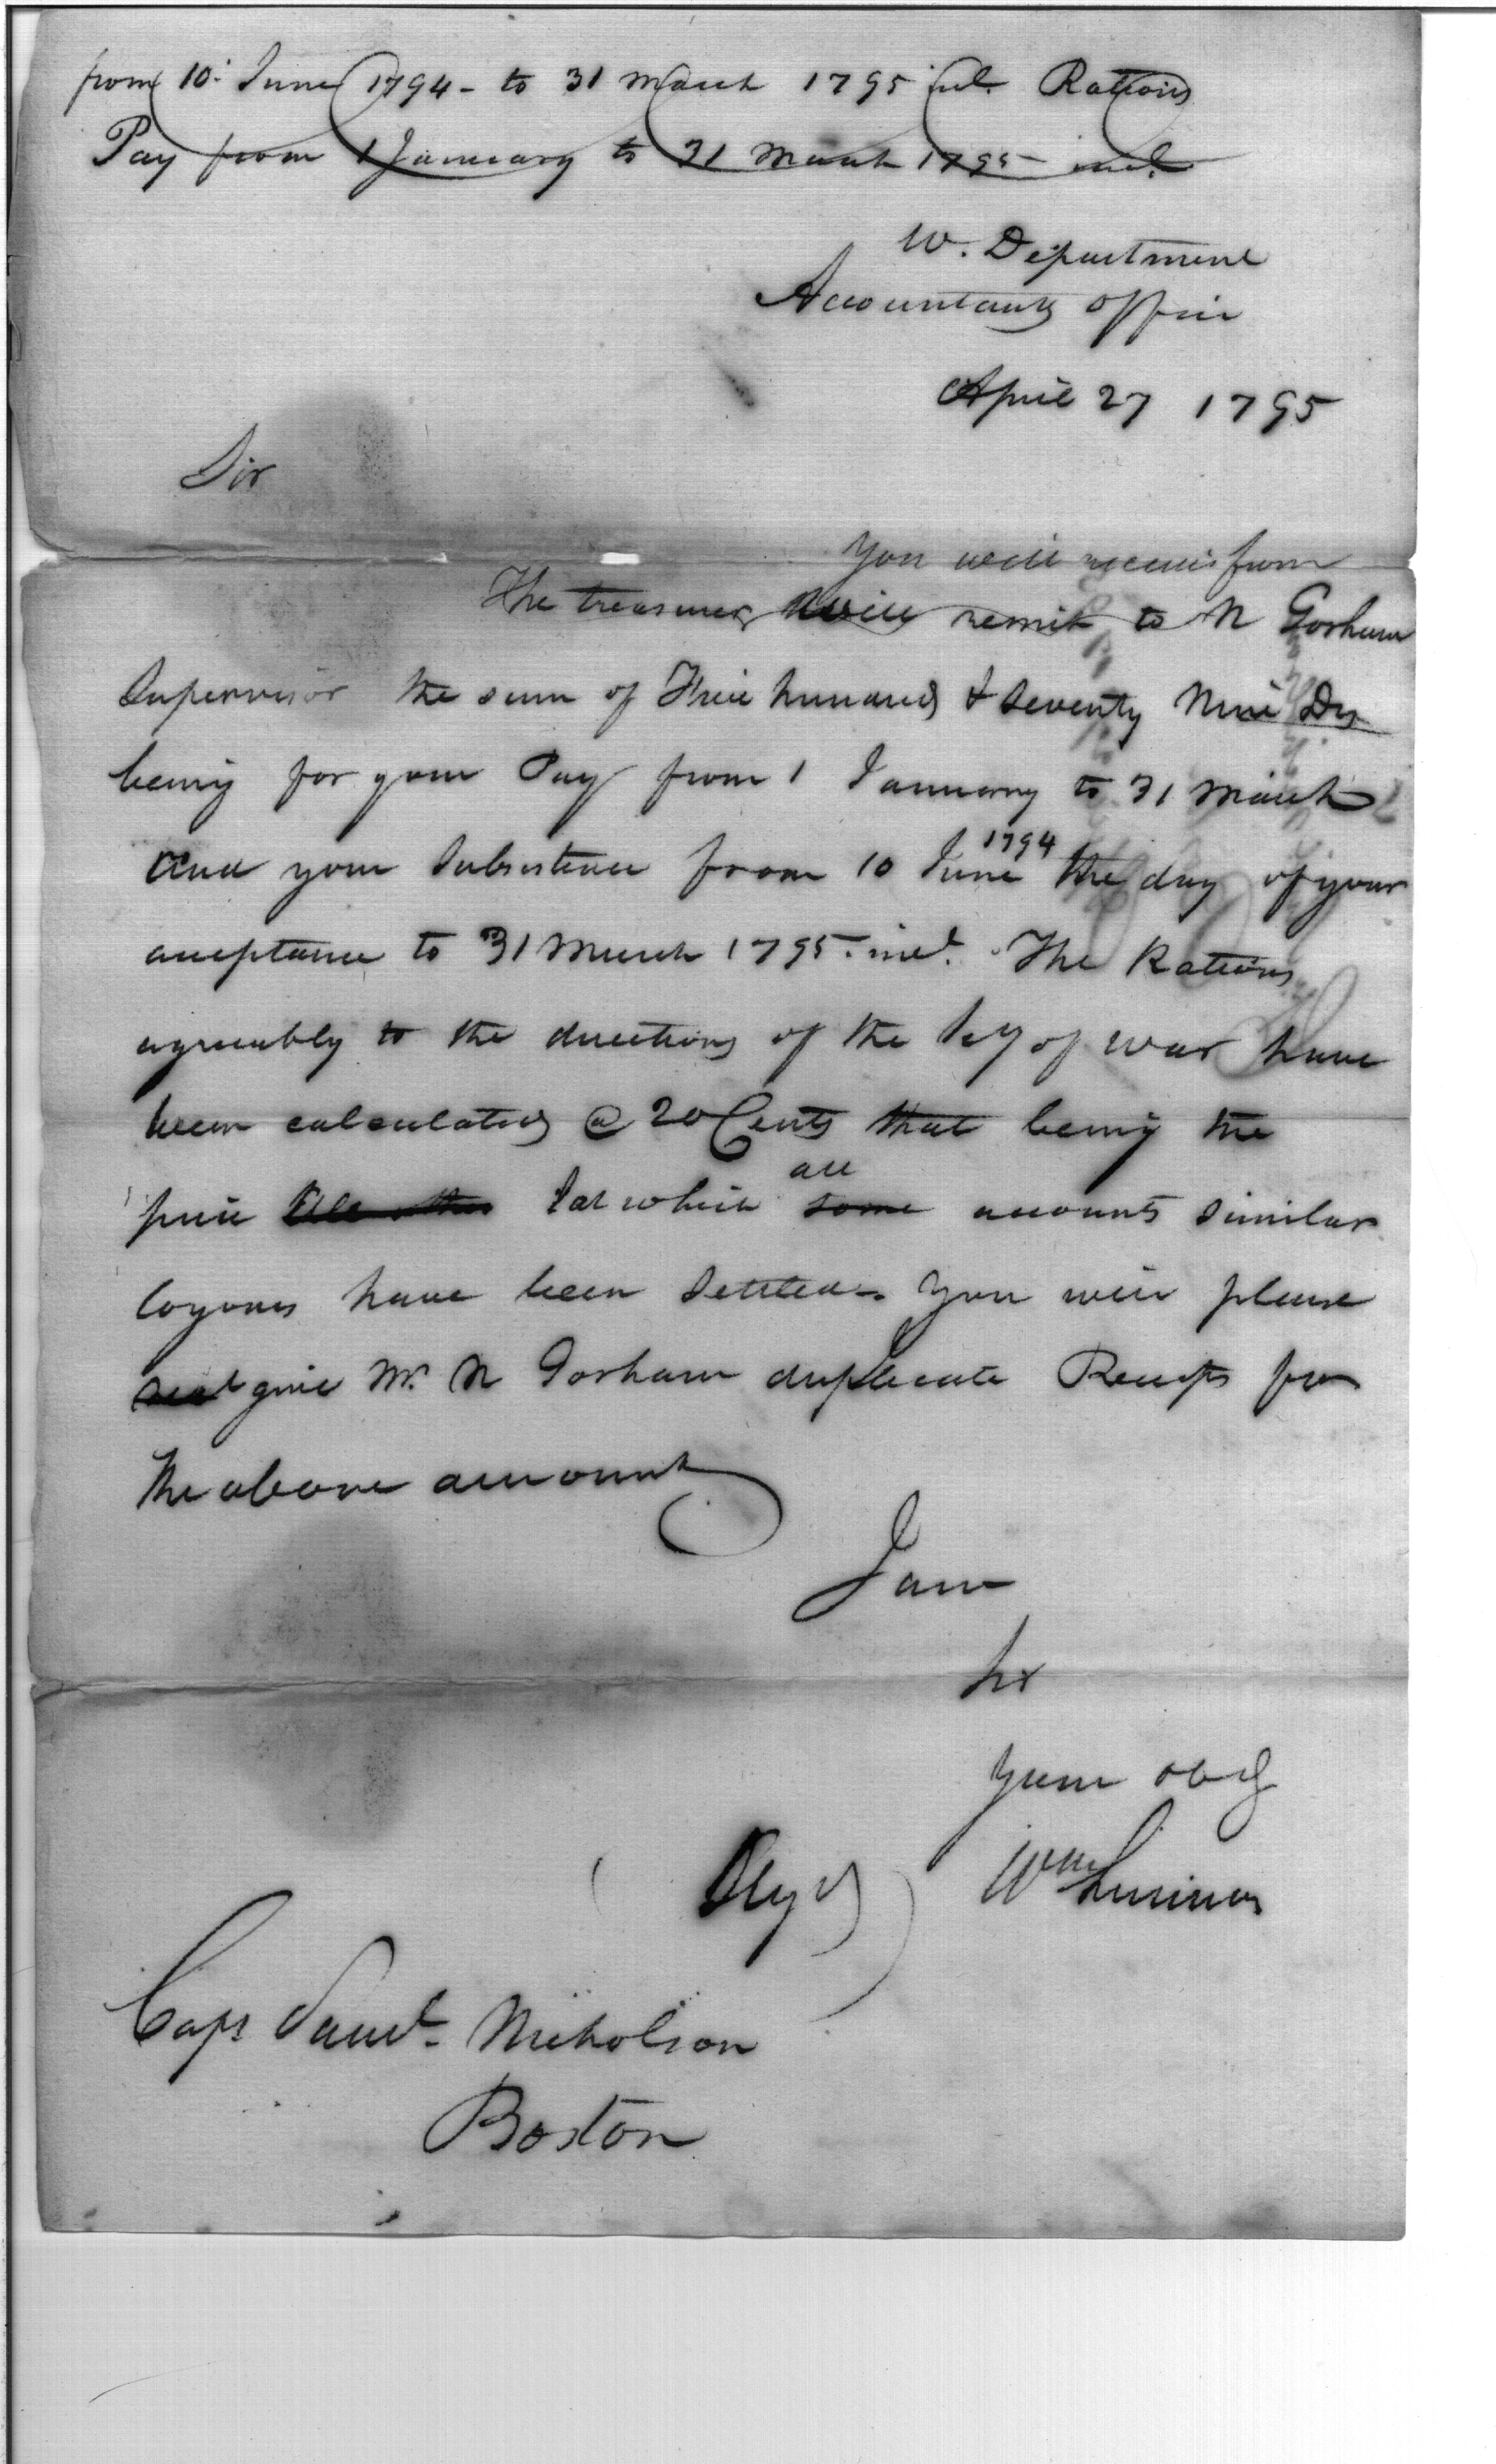 from 10 June 1794 - to 31 March 1795 incl. Rations
Pay from 1 January to 31 March 1795 incl.
W. Department
Accountants office
April 27 1795
Sir
You will receive from
The treasurer will remit to N Gorham
Supervisor the sum of Three hundred & seventy Nine Drs
being for your Pay from 1 January to 31 March
and your Subsistence from 10 June 1794 the day of your
acceptance to 31 March 1795 incl. The Rations
agreeably to the directions of the Sy of War have
been calculated @ 20 Cents that being the
price at which all some accounts similar
to yours have been settled - You will please
give Mr. N Gorham duplicate Receipts for
the above amount
I am
Sir
Your obt
Wm Simmons
Capt Saml. Nicholson
Boston